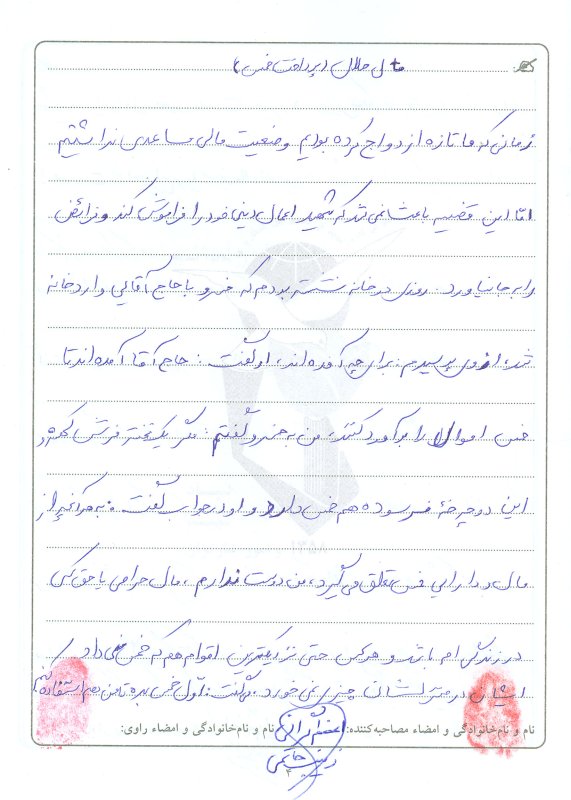 مال حلال (پرداخت خمس)
زمانی که ما تازه ازدواج کرده بودیم وضعیت مالی مساعدی نداشتیم
امّا این قضیه باعث نمی شد که شهید اعمال دینی خود را فراموش کند و فرائض
را به جا نیاورد. روزی در خانه نشسته بودم که خسرو با حاج آقائی وارد خانه
شد، از وی پرسیدم: برای چه آمده اند، او گفت: حاج آقا آمده اند تا
خمس اموال را برآورد کنند، من به خسرو گفتم: مگر یک تخته فرش کهنه و
این دوچرخهٔ فرسوده هم خمس دارد و او در جواب گفت: به هر آنچه از
مال و دارایی خمس تعلق می گیرد، من دوست ندارم، مال حرامی یا حق کسی
در زندگی ام باشد و هر کس حتی نزدیکترین اقوام هم که خمس نمی داد
ایشان در منزلشان چیزی نمی خورد. می گفت: اول خمس بده تا من بعداً استفاده کنم
نام و نام‌خانوادگی و امضاء مصاحبه‌کننده: نام و نام‌خانوادگی و امضاء راوی:
۴